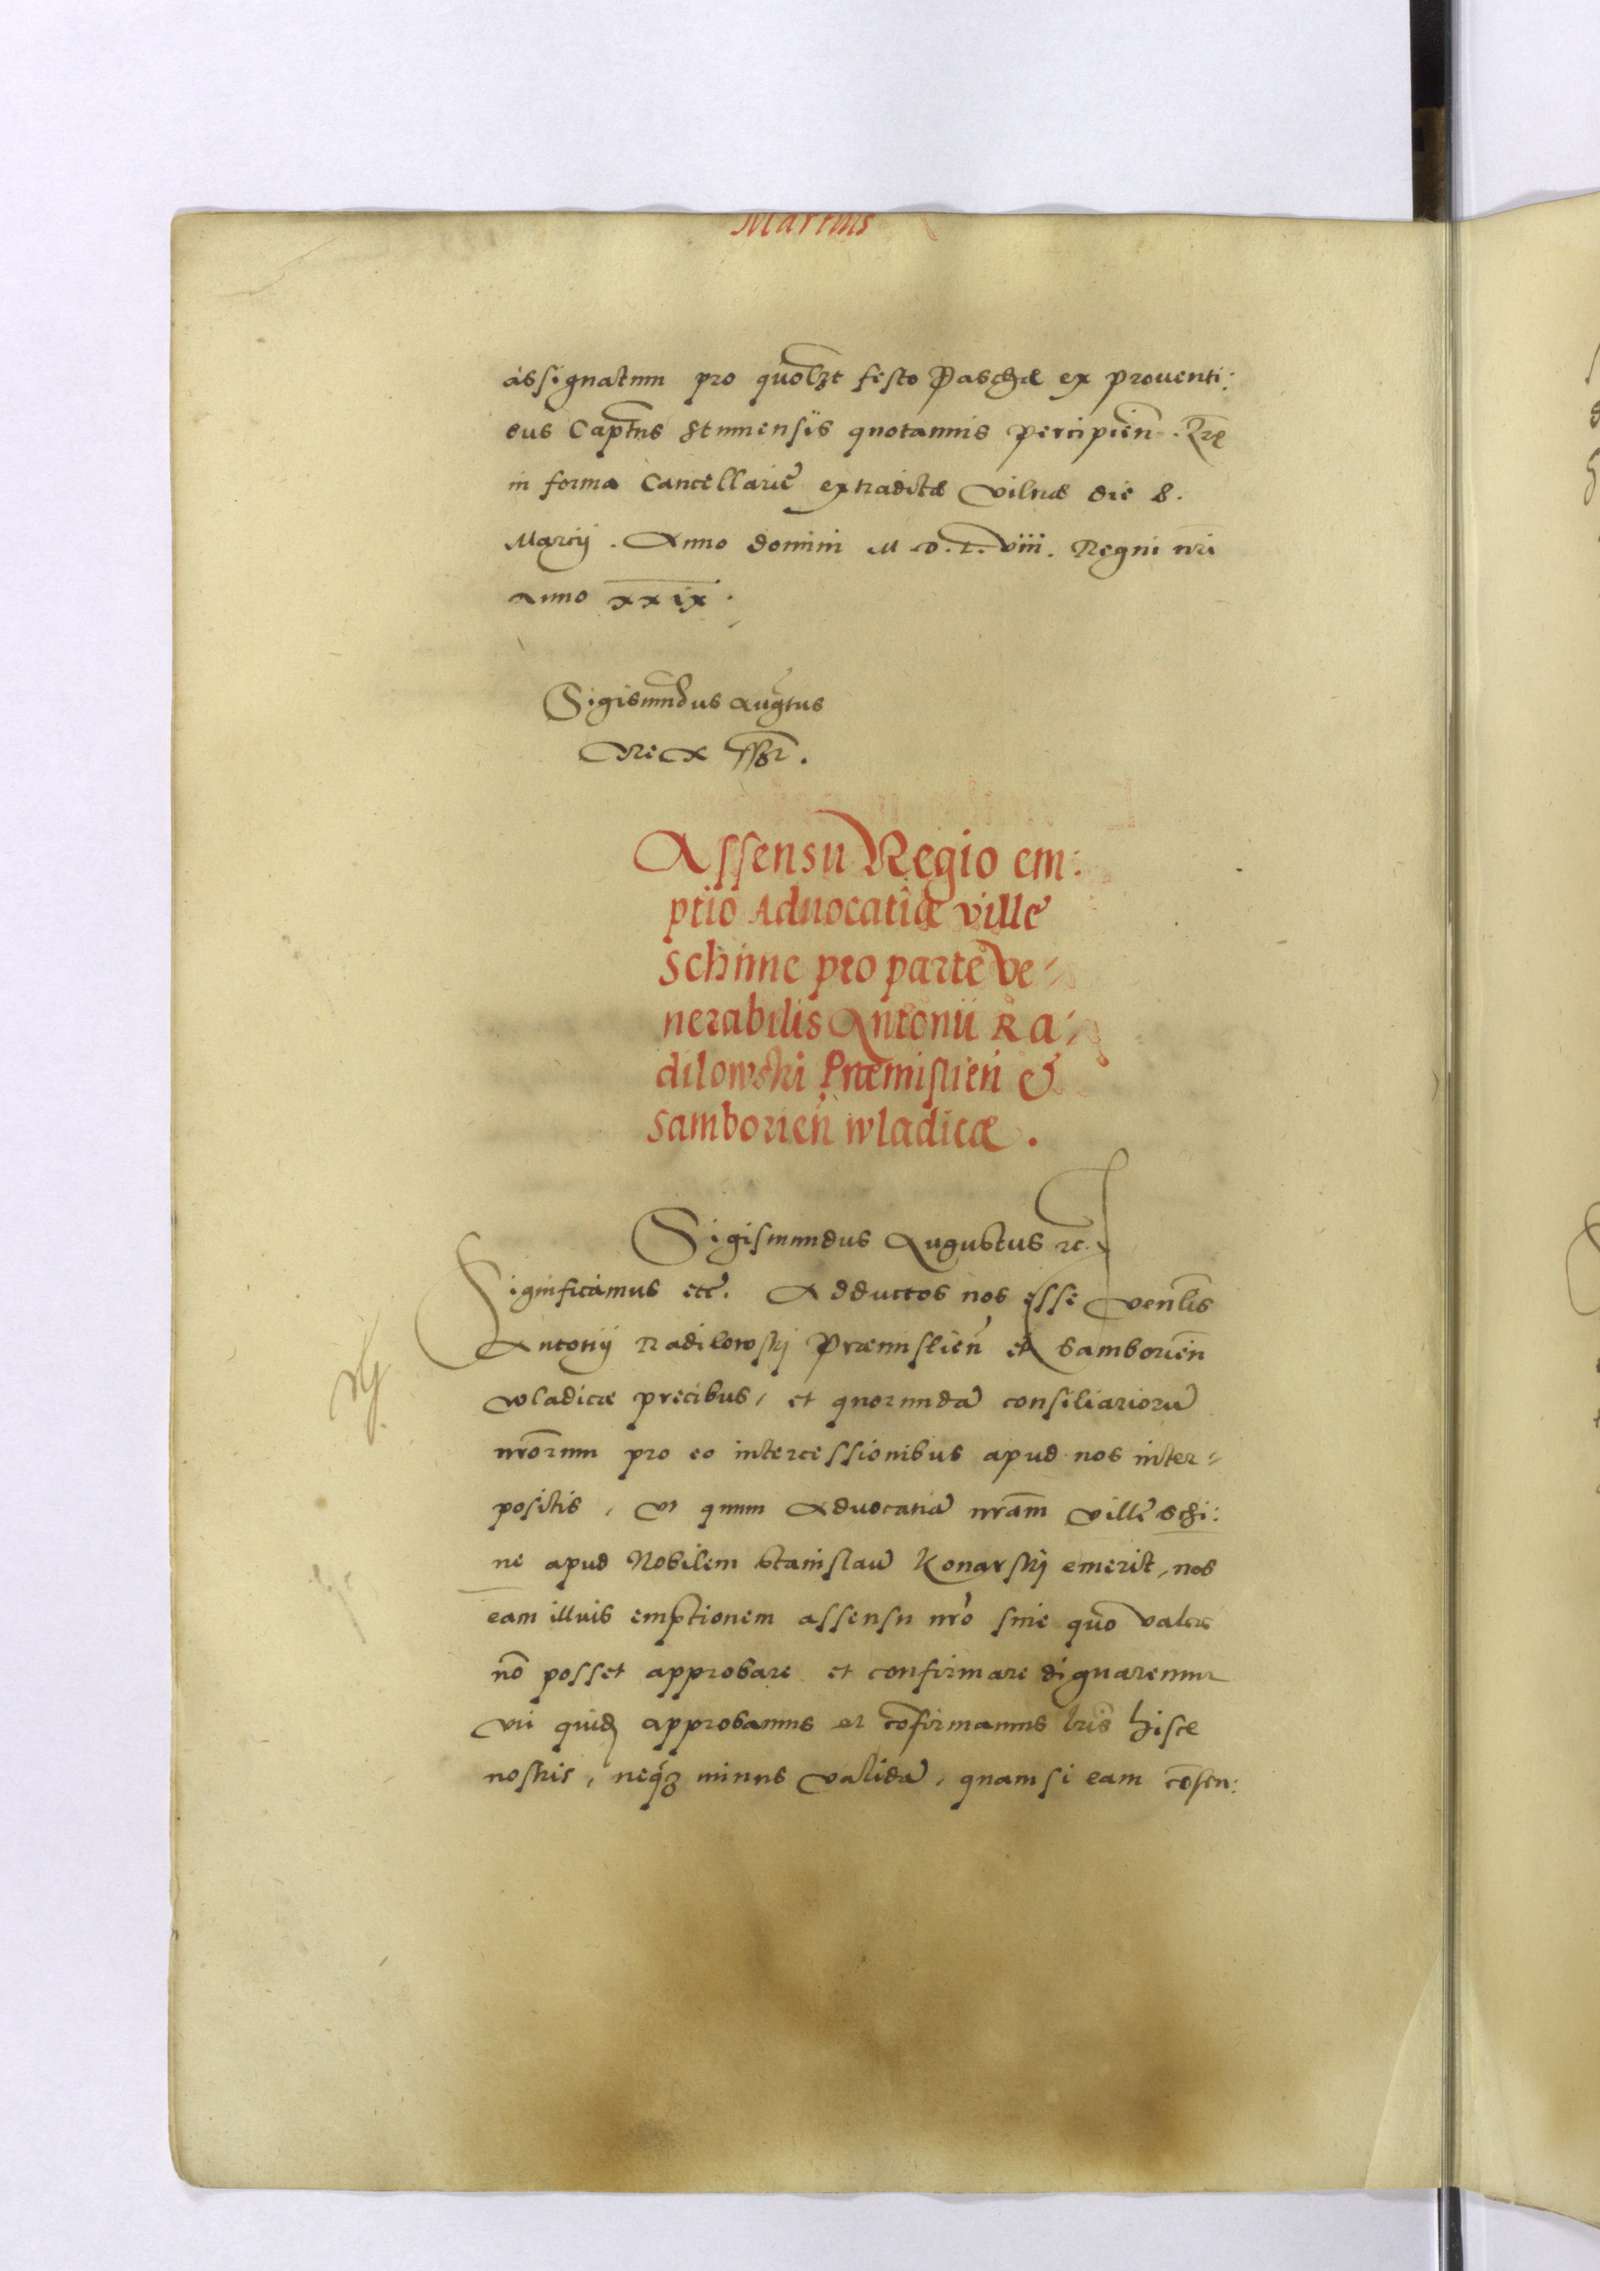 Martius
assignatum pro quolzt festo Paschæ ex prouenti:
bus Captus Stumensis quotannis percipien̄. Lr̄e
in forma Cancellarie extraditæ Vilnæ die 8.
Marcij. Anno domini M.D.L.viii. Regni nr̄i
Anno xxix.
Sigismūdus Augūtus
Rex ssr̄.
Assensu Regio em:
ptio Aduocatiæ ville
Schine pro parte Ve=
nerabilis Antonii Ra=
dilowski Præmislien̄ &
Samborien̄ wladicæ.
Sigismundus Augustus rc.
Significamus etc. Adductos nos esse Ven̄lis
Antonij Radilowskj Præmislien̄ et Samborien̄
wladicæ precibus, et quorundā consiliariorū
nr̄orum pro eo intercessionibus apud nos inter=
positis, Vt quum Aduocatiā nr̄am Ville Schi:
ne apud Nobilem Stanislaū Konarskj emerit, nos
eam illius emptionem assensu nr̄o sine quo valere
nō posset approbare et confirmare dignaremur
Vti quidē approbamus et cōfirmamus lr̄is hisce
nostris, neq3 minus validā, quam si eam cōsen: